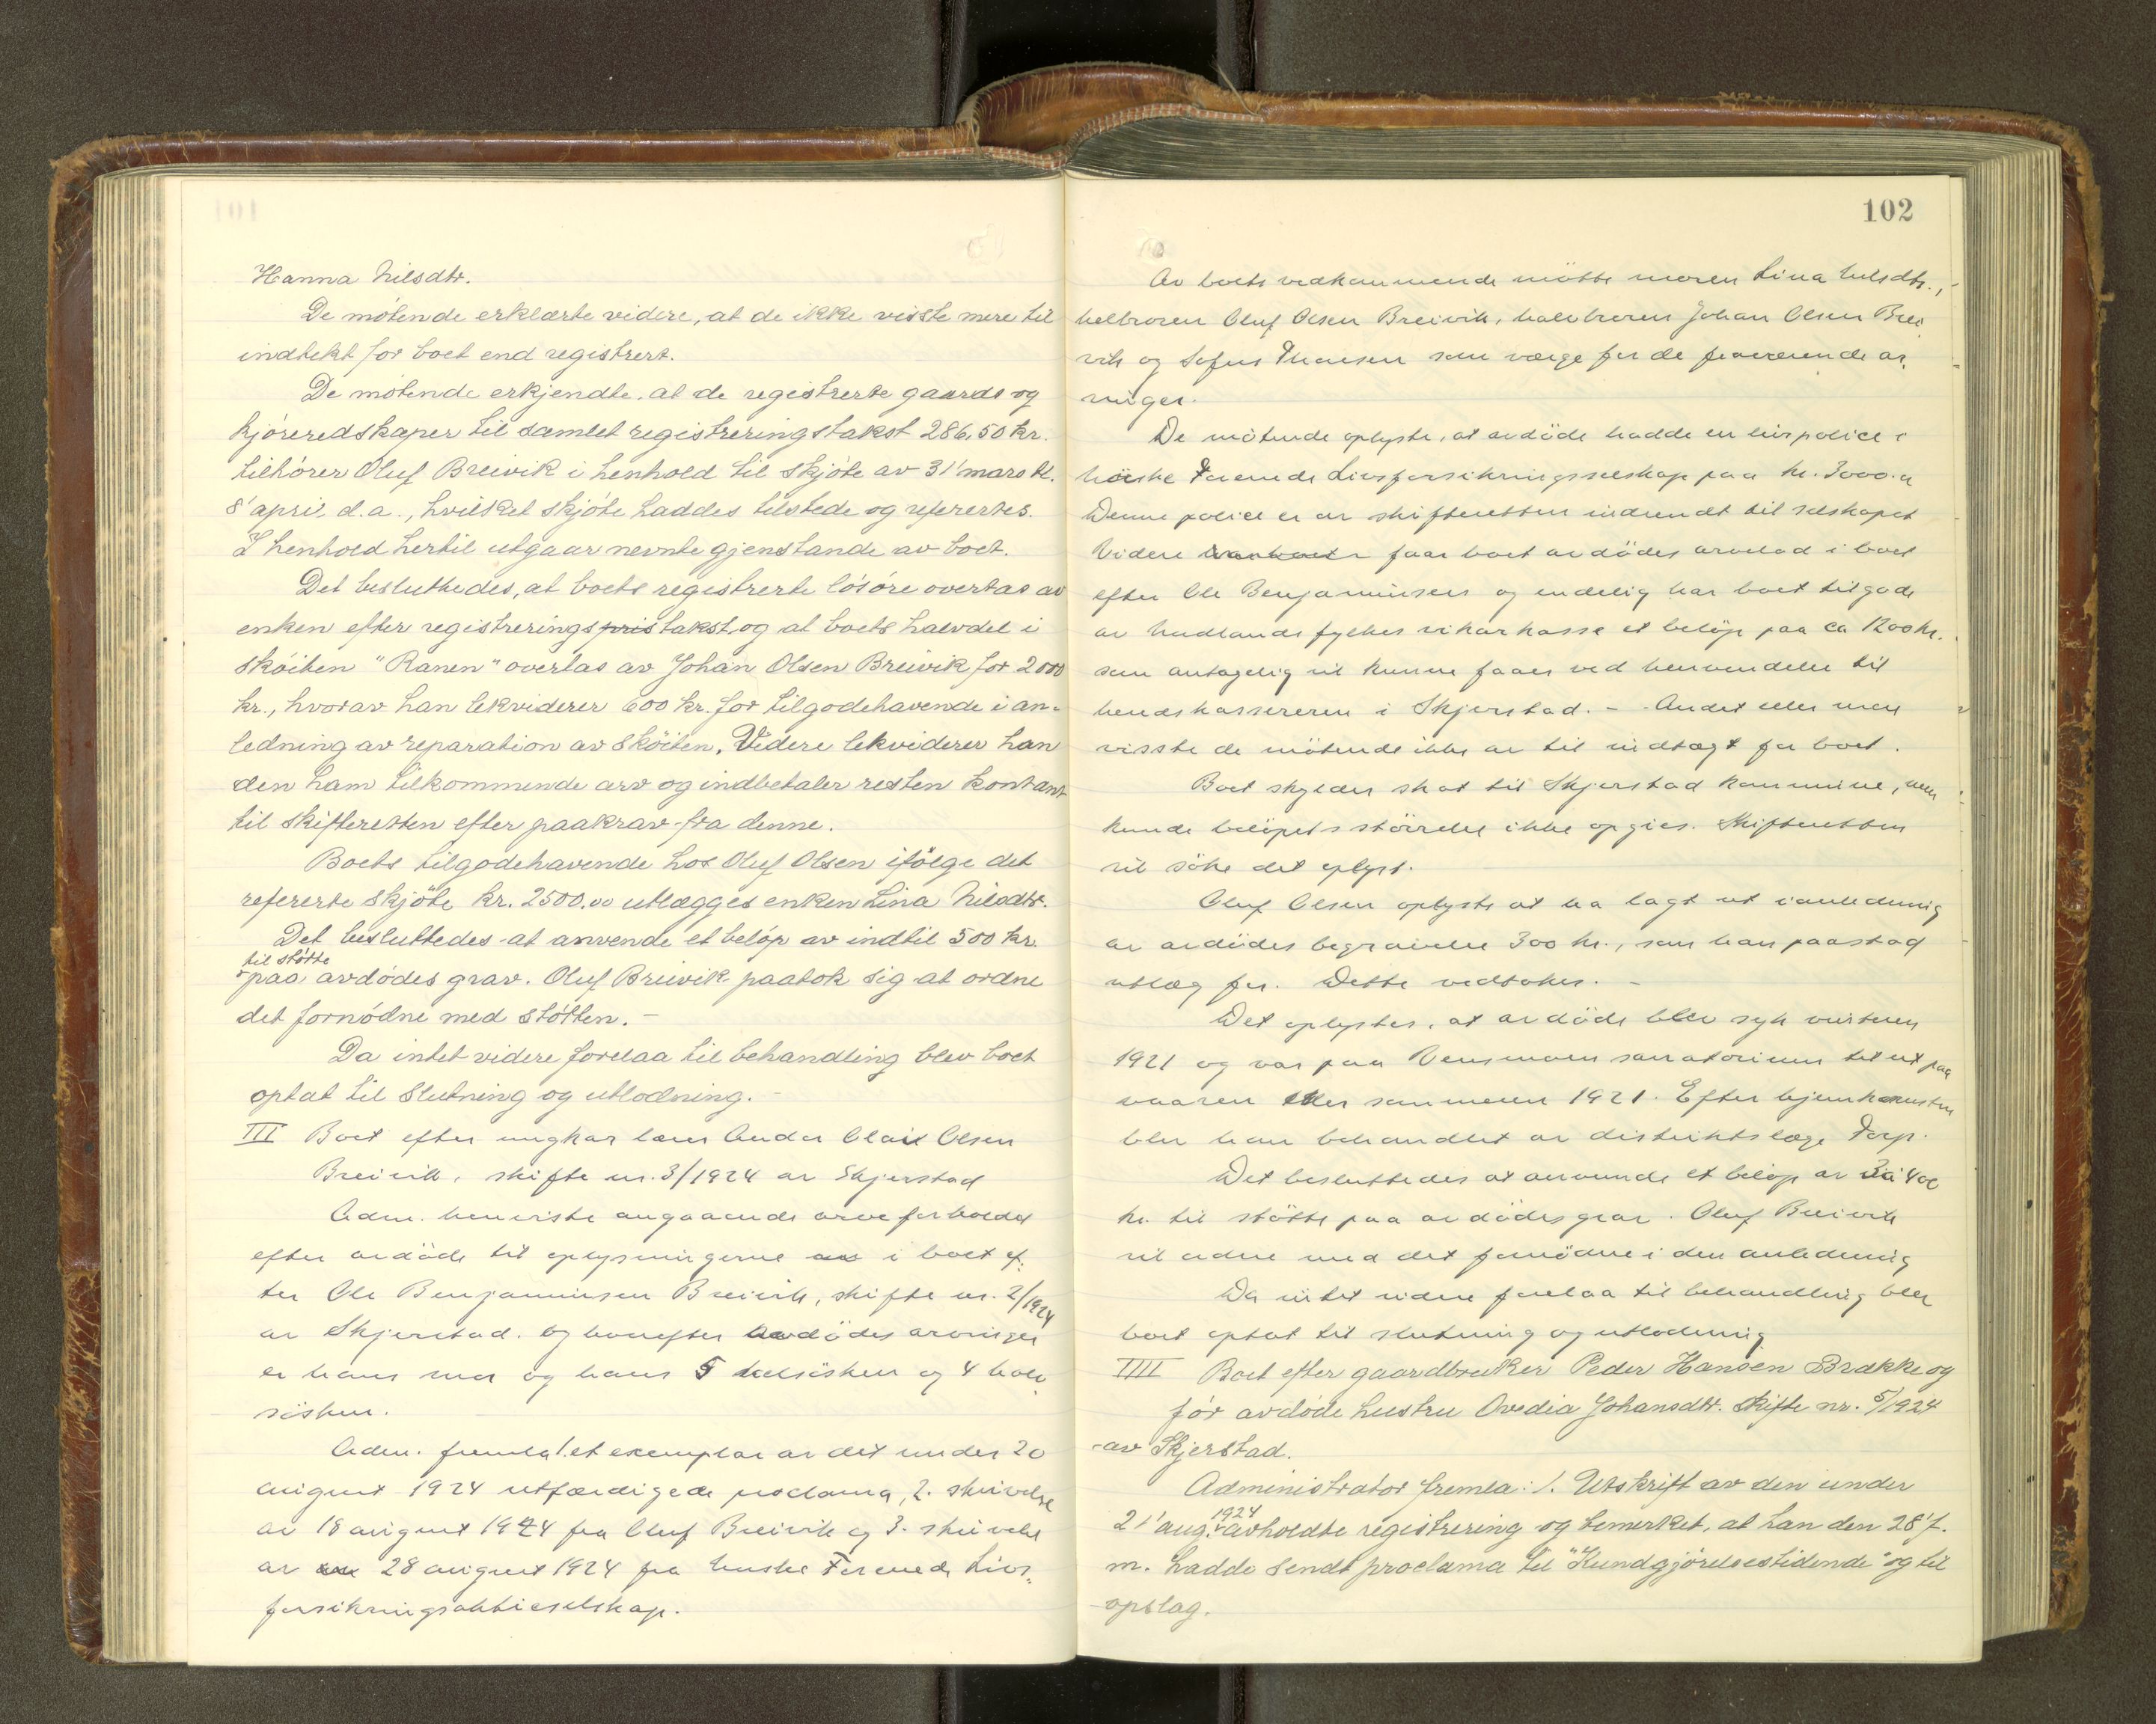 Hanna Nilsdtr.
De møtende erklærte videre, at de ikke visste mere til
indtekt for boet end registrert.
De møtende erkjendte, at de registrerte gaards og
kjøreredskaper til samlet registreringstakst 286,50 kr.
tilhører Oluf Breivik i henhold til skjøte av 31' mars tl.
8' april d.a., hvilket skjøte haddes tilstede og referertes.
I henhold hertil utgaar nevnte gjenstande av boet.
Det besluttedes, at boets registrerte løsøre overtas av
enken efter registreringspristakst, og at boets halvdel i
skøiten "Ranen" overtas av Johan Olsen Breivik for 2000
kr., hvorav han likviderer 600 kr. for tilgodehavende i an-
ledning av reparation av skøiten. Videre likviderer han
den ham tilkommende arv og indbetaler resten kontant
til skifteretten efter paakrav fra denne.
Boets tilgodehavende hos Oluf Olsen ifølge det
refererte skjøte kr. 2500.00 utlægges enken Lina Nilsdtr.
Det besluttedes at anvende et beløp av indtil 500 kr.
til støtte
paa avdødes grav. Oluf Breivik paatok sig at ordne
det fornødne med støtten. -
Da intet videre forelaa til behandling blev boet
optat til slutning og utlodning. -
III Boet efter ungkar lærer Olsen
Breivik, skifte nr. 3/1924 av Skjerstad
Adm. henviste angaaende arveforholdet
efter avdøde til oplysningerne i boet ef-
ter Ole Benjaminsen Breivik, skifte nr. 2/1924
av Skjerstad. Og herefter avdødes arvinger
er hans mor og hans 5 helsøsken og 4 halv
søsken.
Adm. fremla 1. et exemplar av det under 20
august 1924 utfærdigede proclama, 2. skrivelse
av 18 august 1924 fra Oluf Breivik og 3. skrivelse
av 28 august 1924 fra Norske Forenede Livs-
forsikringsaktieselskap.
102
Av boets vedkommende møtte moren Lina Nilsdtr.,
helbroren Oluf Olsen Breivik, halvbroren Johan Olsen Brei
vik og Sofus som værge for de fraværende ar-
vinger.
De møtende oplyste, at avdøde hadde en livspolice i
Norske Forenede Livsforsikringsselskap paa kr. 3000.
Denne police er av skifteretten indsendt til selskapet
Videre faar boet avdødes arvelod i boet
efter Ole Benjaminsen og endelig har boet tilgode
av Nordlands fylkes vikarkasse et beløp paa ca 1200 kr.
som antagelig vil kunne faaes ved henvendelse til
herredskassereren i Skjerstad. - Andet eller mere
visste de møtende ikke av til indtægt for boet.
Boet skylder skat til Skjerstad kommune, men
kunde beløpets størrelse ikke opgies. Skifteretten
vil søke det oplyst.
Oluf Olsen oplyste at ha lagt ut i anledning
av avdødes begravelse 300 kr., som han paastod
utlæg for. Dette vedtokes. -
Det oplystes, at avdøde blev syk vinteren
1921 og var paa Vensmoen sanatorium til ut paa
vaaren eller sommeren 1921. Efter hjemkomsten
blev han behandlet av distriktslæge
Det besluttedes at anvende et beløp av 3 à 400
kr. til støtte paa avdødes grav. Oluf Breivik
vil ordne med det fornødne i den anledning
Da intet videre forelaa til behandling blev
boet optat til slutning og utlodning
IIII Boet efter gaardbruker Peder Hansen Brække og
før avdøde hustru Ovedia Johansdtr. Skifte nr. 5/1924
av Skjerstad.
Administrator fremla: 1. Utskrift av den under
21' aug. 1924 avholdte registrering og bemerket, at han den 28' f.
m. hadde sendt proclama til "Kundgjørelsestidende" og til
opslag.